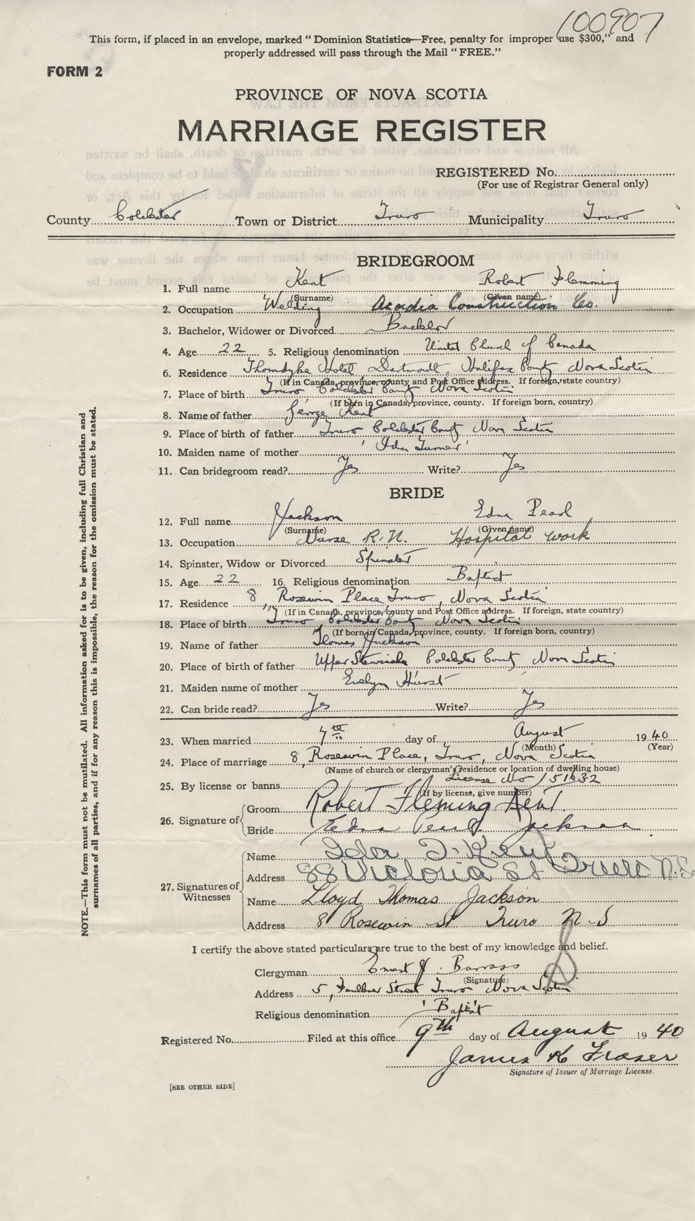 100907
This form, if placed in an envelope, marked "Dominion Statistics—Free, penalty for improper use $300," and
properly addressed will pass through the Mail "FREE."
FORM 2
PROVINCE OF NOVA SCOTIA
MARRIAGE REGISTER
REGISTERED No.
(For use of Registrar General only)
County Colchester Town or District Truro Municipality Truro
BRIDEGROOM
1. Full name Kent Robert Flemming
(Surname) (Given name)
2. Occupation Welding Acadia Construction Co.
3. Bachelor, Widower or Divorced Bachelor
4. Age 22 5. Religious denomination United Church of Canada
6. Residence Thorndyke Hotel Dartmouth, Halifax County Nova Scotia
(If in Canada, province, county and Post Office address. If foreign, state country)
7. Place of birth Truro Colchester County Nova Scotia
(If born in Canada, province, county. If foreign born, country)
8. Name of father George Kent
9. Place of birth of father Truro Colchester County Nova Scotia
10. Maiden name of mother Ida Turner
11. Can bridegroom read? Yes Write? Yes
BRIDE
12. Full name Jackson Edna Pearl
(Surname) (Given name)
13. Occupation Nurse R.N. Hospital work
14. Spinster, Widow or Divorced Spinster
15. Age 22 16. Religious denomination Baptist
17. Residence 8 Rosewin Place Truro, Nova Scotia
(If in Canada, province, county and Post Office address. If foreign, state country)
18. Place of birth Truro Colchester County Nova Scotia
(If born in Canada, province, county. If foreign born, country)
19. Name of father Thomas Jackson
20. Place of birth of father Upper Stewiacke Colchester County Nova Scotia
21. Maiden name of mother Evelyn Hurst
22. Can bride read? Yes Write? Yes
23. When married 7th day of August 1940
(Month) (Year)
24. Place of marriage 8, Rosewin Place, Truro, Nova Scotia
(Name of church or clergyman's residence or location of dwelling house)
25. By license or banns License No 151432
(If by license, give number)
26. Signature of
Groom Robert Fleming Kent.
Bride Edna Pearl Jackson
27. Signatures of Witnesses
Name Ida T. Kent
Address 88 Victoria St Truro N.S
Name Lloyd Thomas Jackson
Address 8 Rosewin St Truro N.S
I certify the above stated particulars are true to the best of my knowledge and belief.
Clergyman Ernest J. Barrass
(Signature)
Address 5, Faulkner Street Truro Nova Scotia
Religious denomination Baptist
Registered No. Filed at this office 9th day of August 1940
James K Fraser
Signature of Issuer of Marriage License.
[SEE OTHER SIDE]
NOTE.—This form must not be mutilated. All information asked for is to be given, including full Christian and
surnames of all parties, and if for any reason this is impossible, the reason for the omission must be stated.